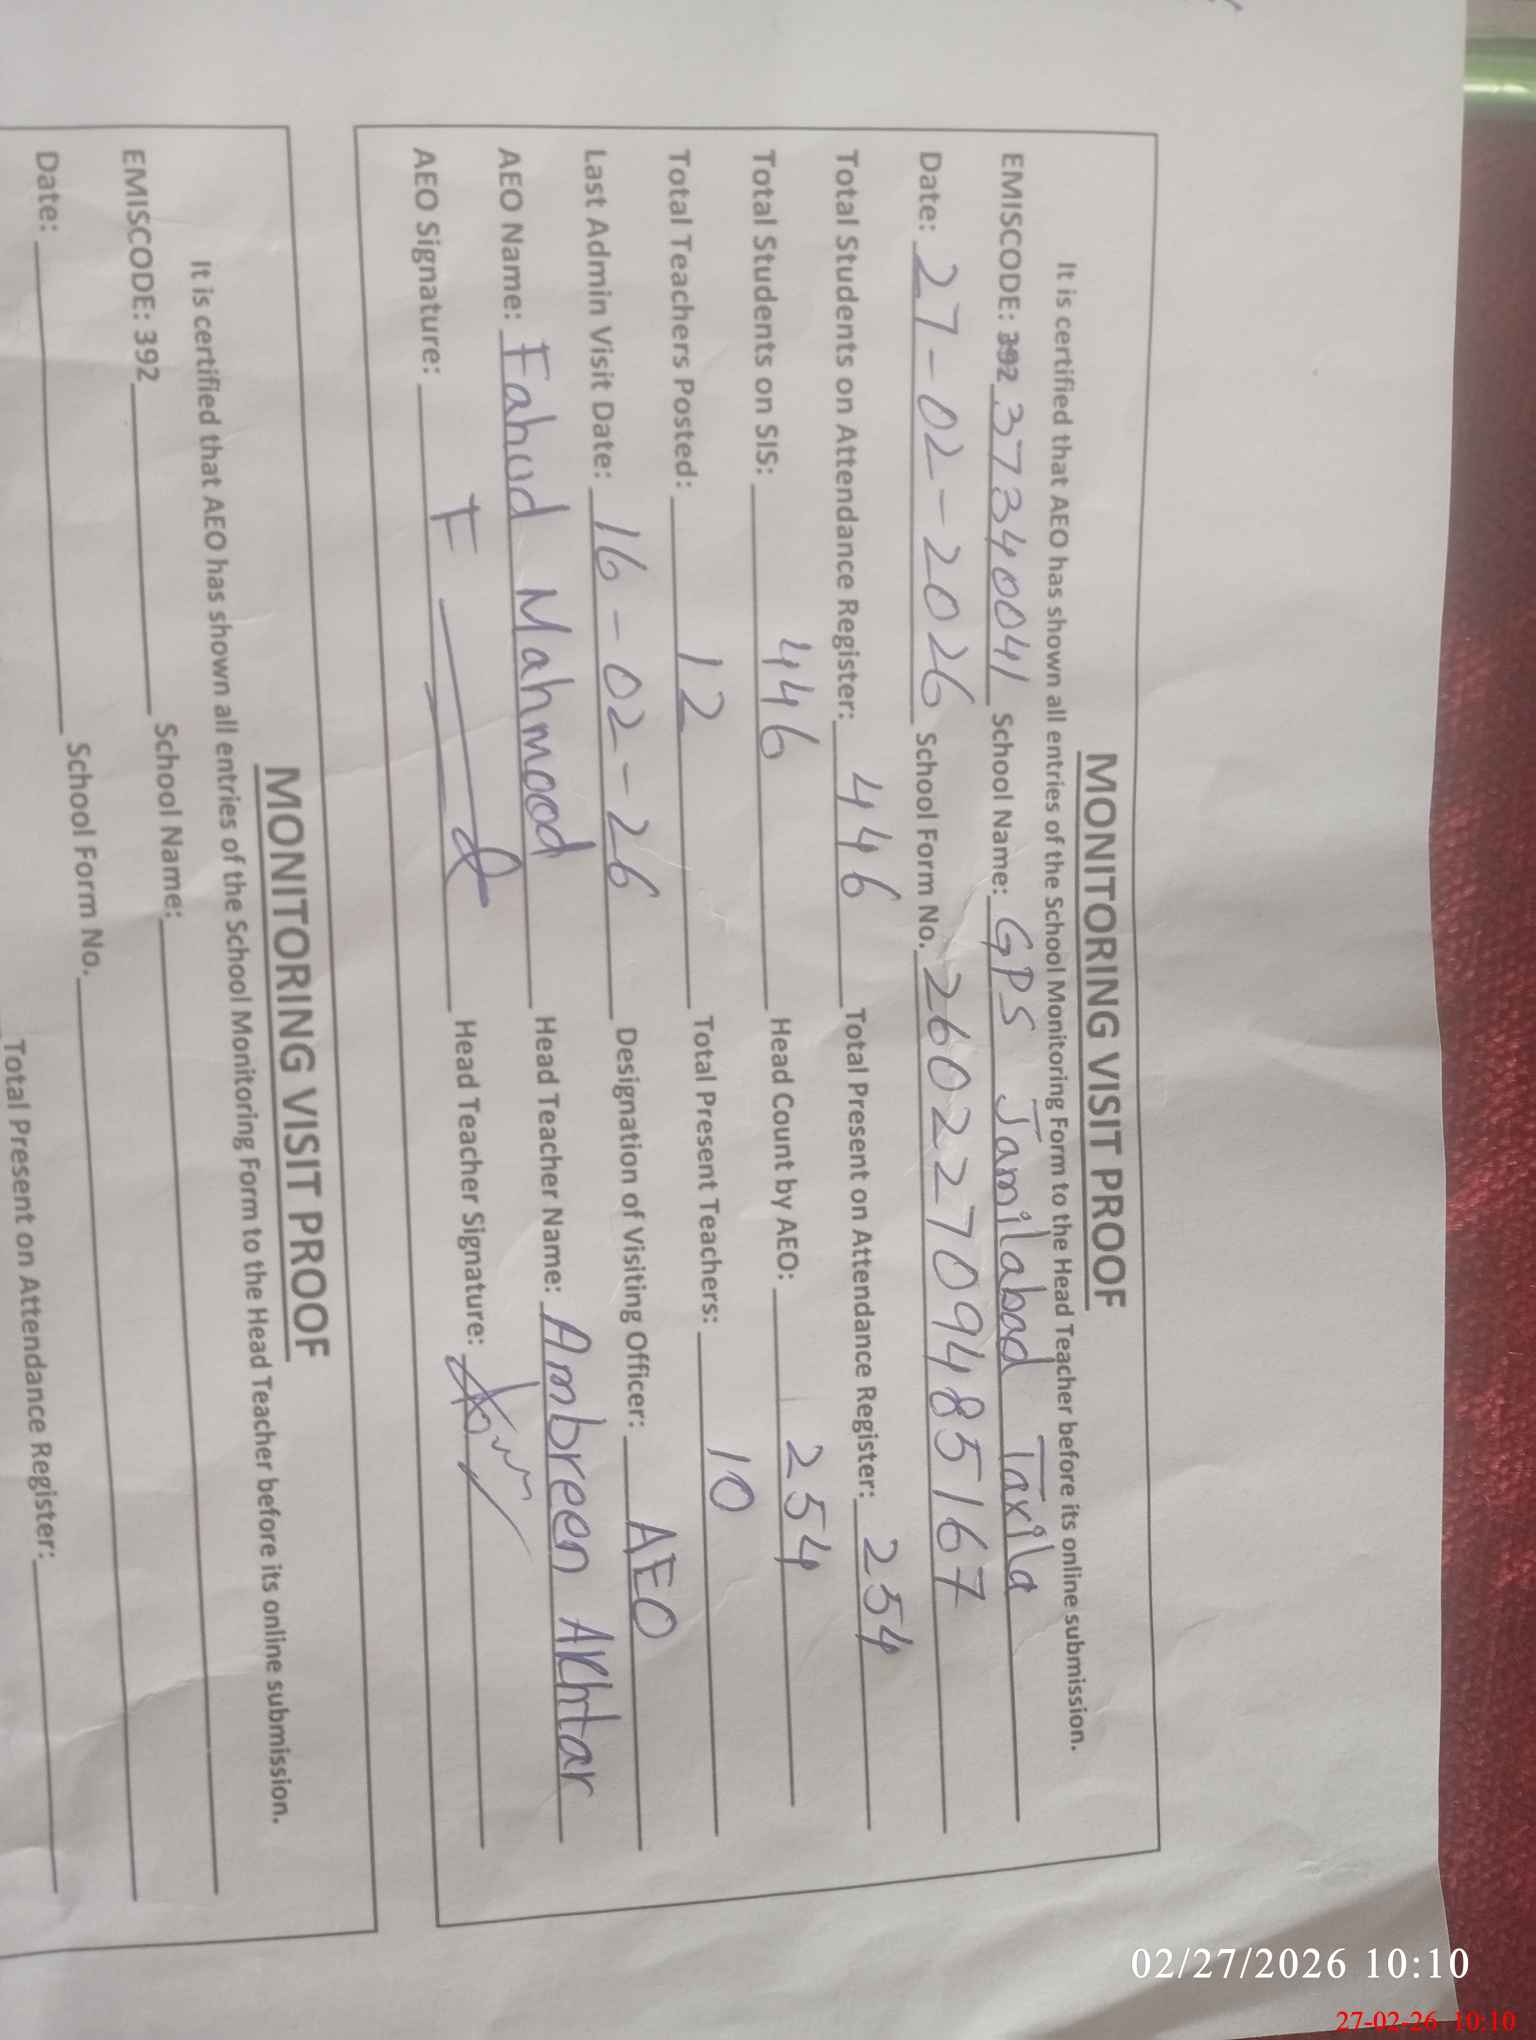 MONITORING VISIT PROOF
It is certified that AEO has shown all entries of the School Monitoring Form to the Head Teacher before its online submission.
EMISCODE: 392 37340041 School Name: GPS Jamilabad Taxila
Date: 27-02-2026 School Form No. 26022709485167
Total Students on Attendance Register: 446 Total Present on Attendance Register: 254
Total Students on SIS: 446 Head Count by AEO: 254
Total Teachers Posted: 12 Total Present Teachers: 10
Last Admin Visit Date: 16-02-26 Designation of Visiting Officer: AEO
AEO Name: Fahud Mahmood Head Teacher Name: Ambreen Akhtar
AEO Signature: Head Teacher Signature:
MONITORING VISIT PROOF
It is certified that AEO has shown all entries of the School Monitoring Form to the Head Teacher before its online submission.
EMISCODE: 392 School Name:
Date: School Form No.
Total Present on Attendance Register:
02/27/2026 10:10
27-02-26 10:10